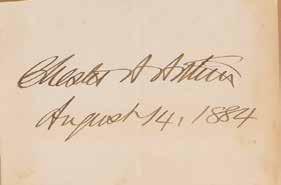 Chester A Arthur
August 14, 1884